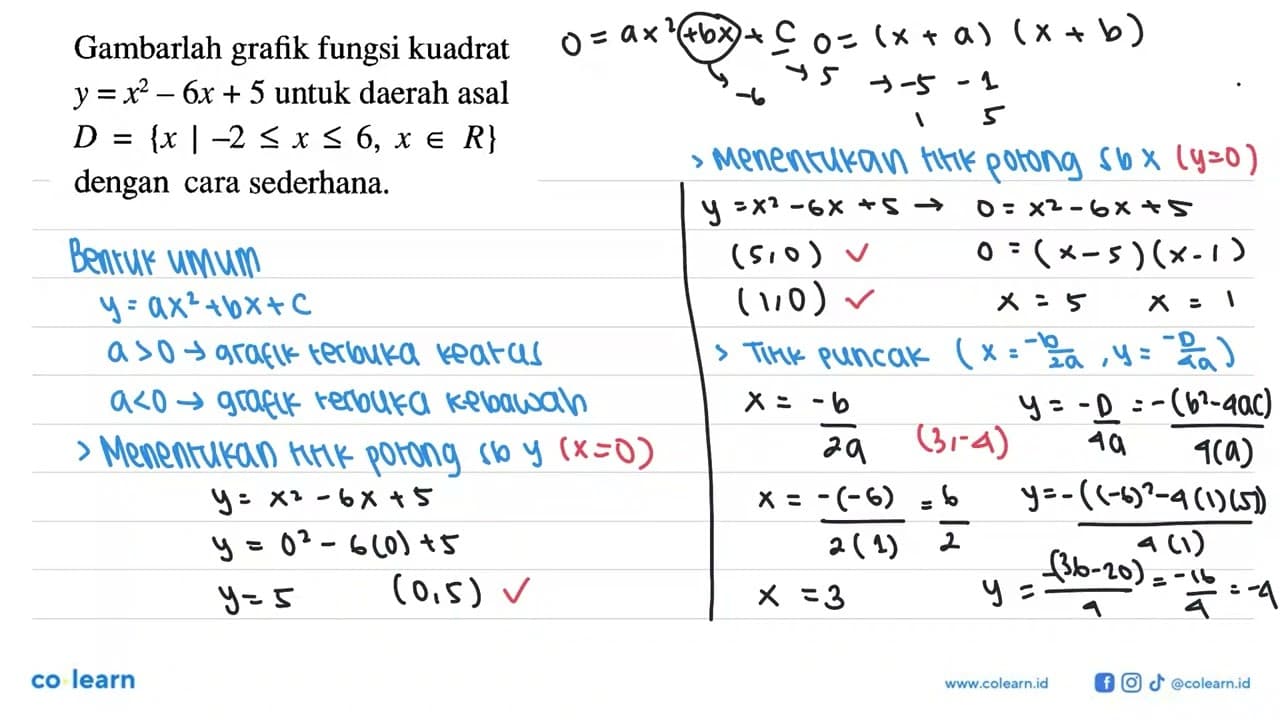 Gambarlah grafik fungsi kuadrat
y = x² – 6x + 5 untuk daerah asal
D = {x | –2 ≤ x ≤ 6, x ∈ R}
dengan cara sederhana.
0 = ax² + bx + c 0 = (x + a) (x + b)
→ -6 → 5 → -5 -1
1 5
Bentuk umum
y = ax² + bx + c
a > 0 → grafik terbuka keatas
a < 0 → grafik terbuka kebawah
> Menentukan titik potong sb y (x=0)
y = x² - 6x + 5
y = 0² - 6(0) + 5
y = 5 (0,5) ✓
> Menentukan titik potong sb x (y=0)
y = x² - 6x + 5 → 0 = x² - 6x + 5
(5,0) ✓ 0 = (x-5)(x-1)
(1,0) ✓ x = 5 x = 1
> Titik puncak (x = -b/2a, y = -D/4a)
x = -b/2a (3,-4) y = -D/4a = -(b²-4ac)/4(a)
x = -(-6)/2(1) = 6/2 y = -((-6)²-4(1)(5))/4(1)
x = 3 y = -(36-20)/4 = -16/4 = -4
co learn
www.colearn.id @colearn.id